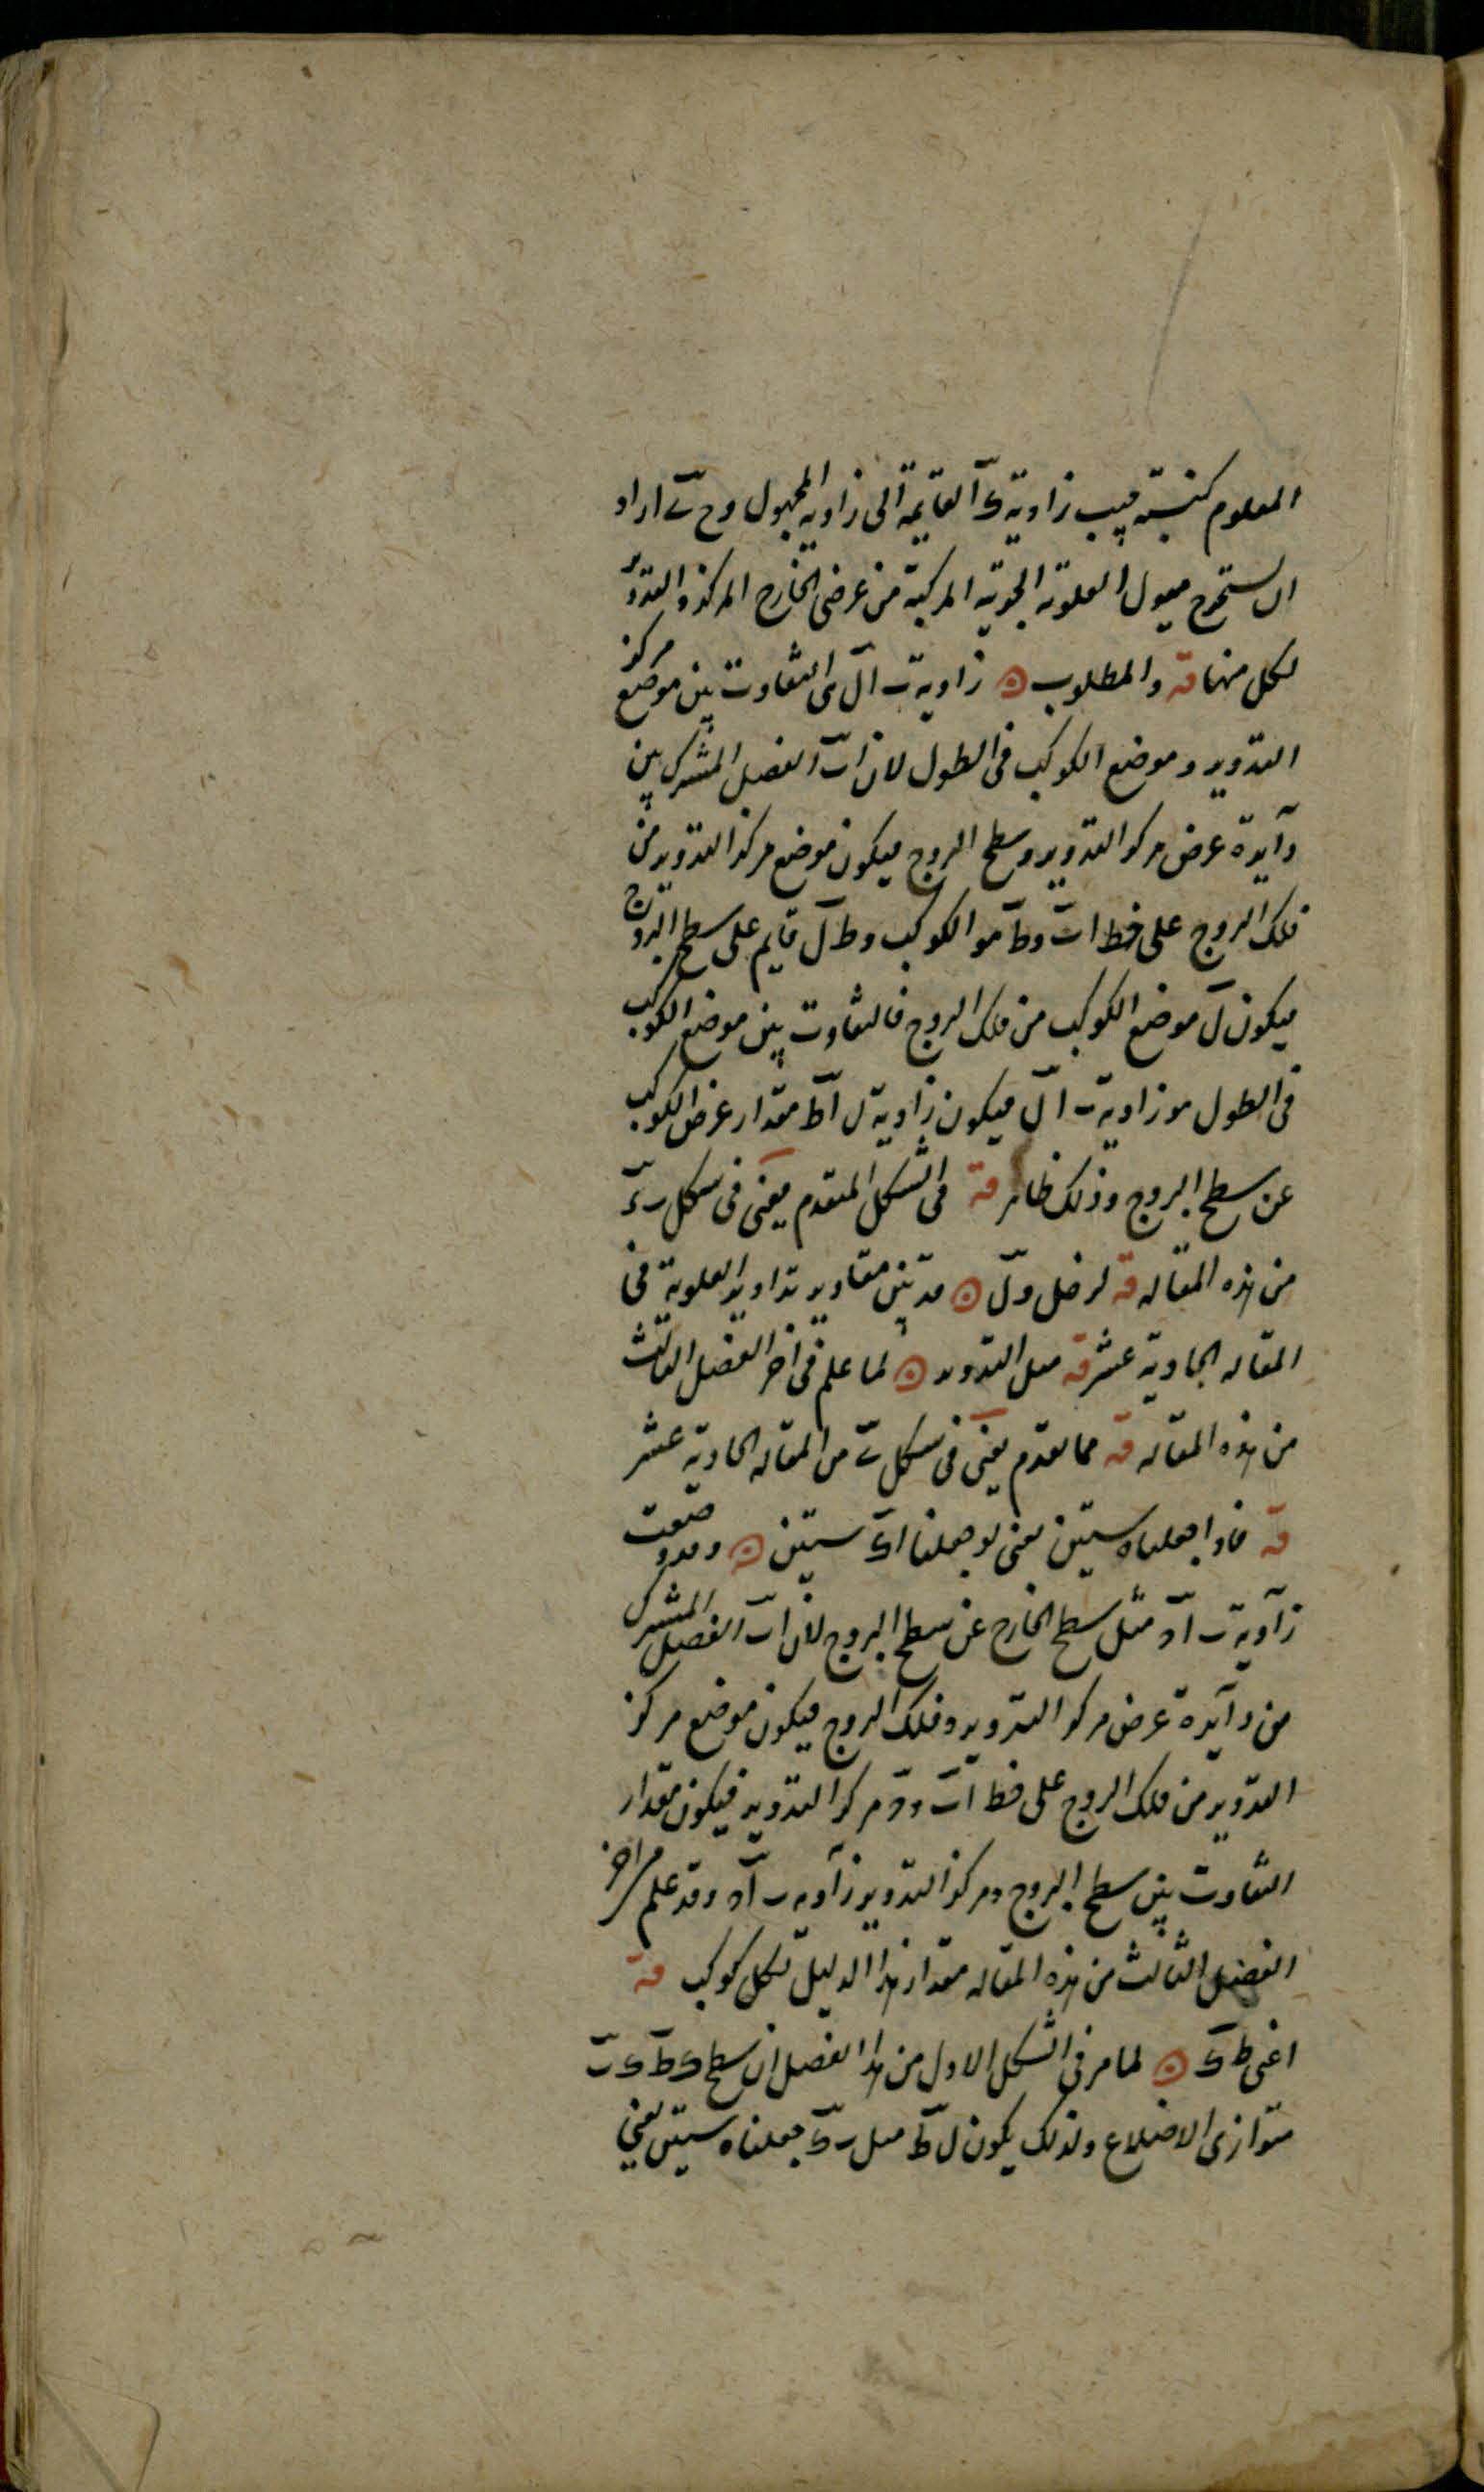 المعلوم كنسبة جيب زاوية ک القايمة الى زاويه المجهول وح ى اراد
ان يستخرج ميول العلوية الجزئية المركبة من عرضى الخارج المركز والتدوير
لكل منها قه والمطلوب ⊙ زاوية ب ا ل هى التفاوت بين موضع مركز
التدوير و موضع الكوكب فى الطول لان ا ب الفصل المشترك بين
دايرة عرض مركز التدوير وسطح البروج فيكون موضع مركز التدوير من
فلك البروج على خط ا ب و ط هو الكوكب و ط ل قايم على سطح البروج
فيكون ل موضع الكوكب من فلك البروج فالتفاوت بين موضع الكوكب
فى الطول هو زاوية ب ا ل فيكون زاوية ل ا ط مقدار عرض الكوكب
عن سطح البروج وذلك ظاهر قه فى الشكل المتقدم يعنى فى شكل
من هذه المقاله قه لزحل ول ⊙ قد تبين مقادير تداوير العلوية فى
المقاله الحادية عشر قه ميل التدوير ⊙ لما علم فى اخر الفصل الثالث
من هذه المقاله قه مما تقدم يعنى فى شكل ى من المقاله الحادية عشر
قه فاذا جعلناه ستين يعنى لو جعلنا ا ک ستين ⊙ و وقعت
زاوية ب ا د مثل سطح الخارج عن سطح البروج لان ا ب الفصل المشترك
من دايرة عرض مركز التدوير وفلك البروج فيكون موضع مركز
التدوير من فلك البروج على خط ا ب و د مركز التدوير فيكون مقدار
التفاوت بين سطح البروج ومركز التدوير زاوية ب ا د وقد علم من اخر
الفصل الثالث من هذه المقاله مقدار هذا الدليل لكل كوكب قه
اعنى ط ک ⊙ لما مر فى الشكل الاول من هذا الفصل ان سطح ک ط ک ب
متوازى الاضلاع ولذلك يكون ل ط مثل ب ک جعلناه ستين يعنى